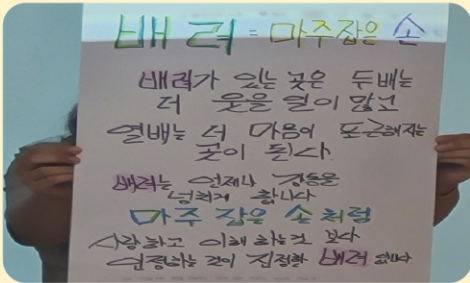 배려 = 마주잡은 손
배려가 있는 곳은 두배는
더 웃을 일이 많고
열배는 더 마음이 포근해지는
곳이 된다.
배려는 언제나 감동을
넘치게 합니다
마주 잡은 손 처럼
사랑하고 이해하는것 보다
인정하는 것이 진정한 배려 입니다